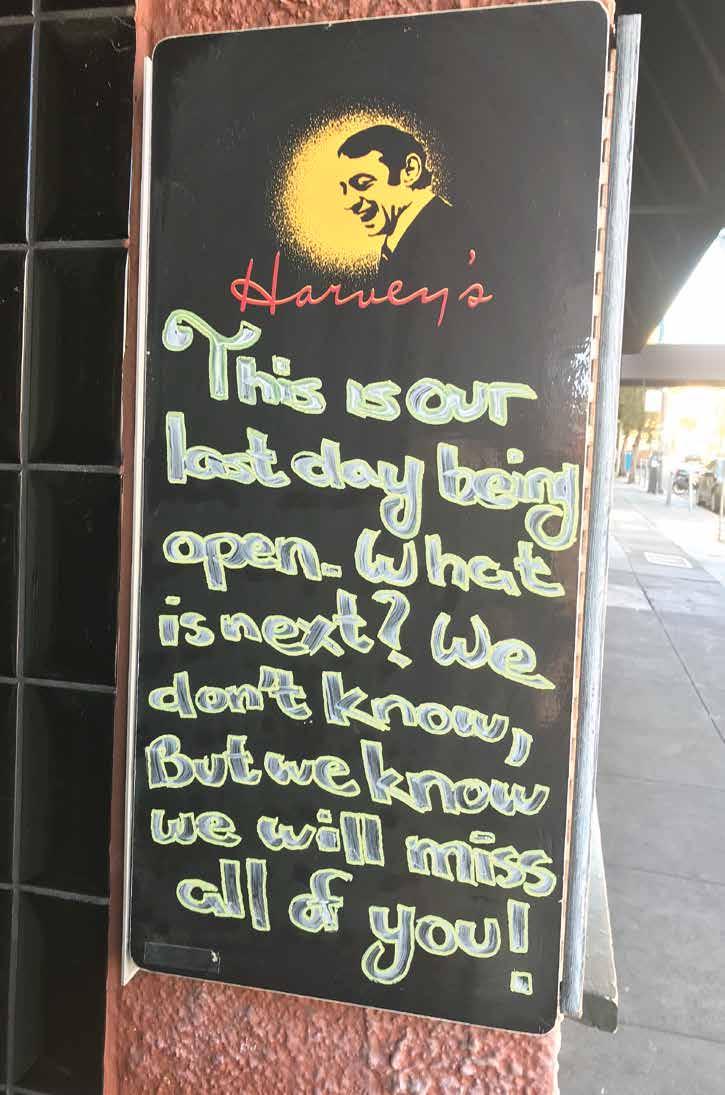 Harvey's
This is our
last day being
open. What
is next? We
don't know,
But we know
we will miss
all of you!